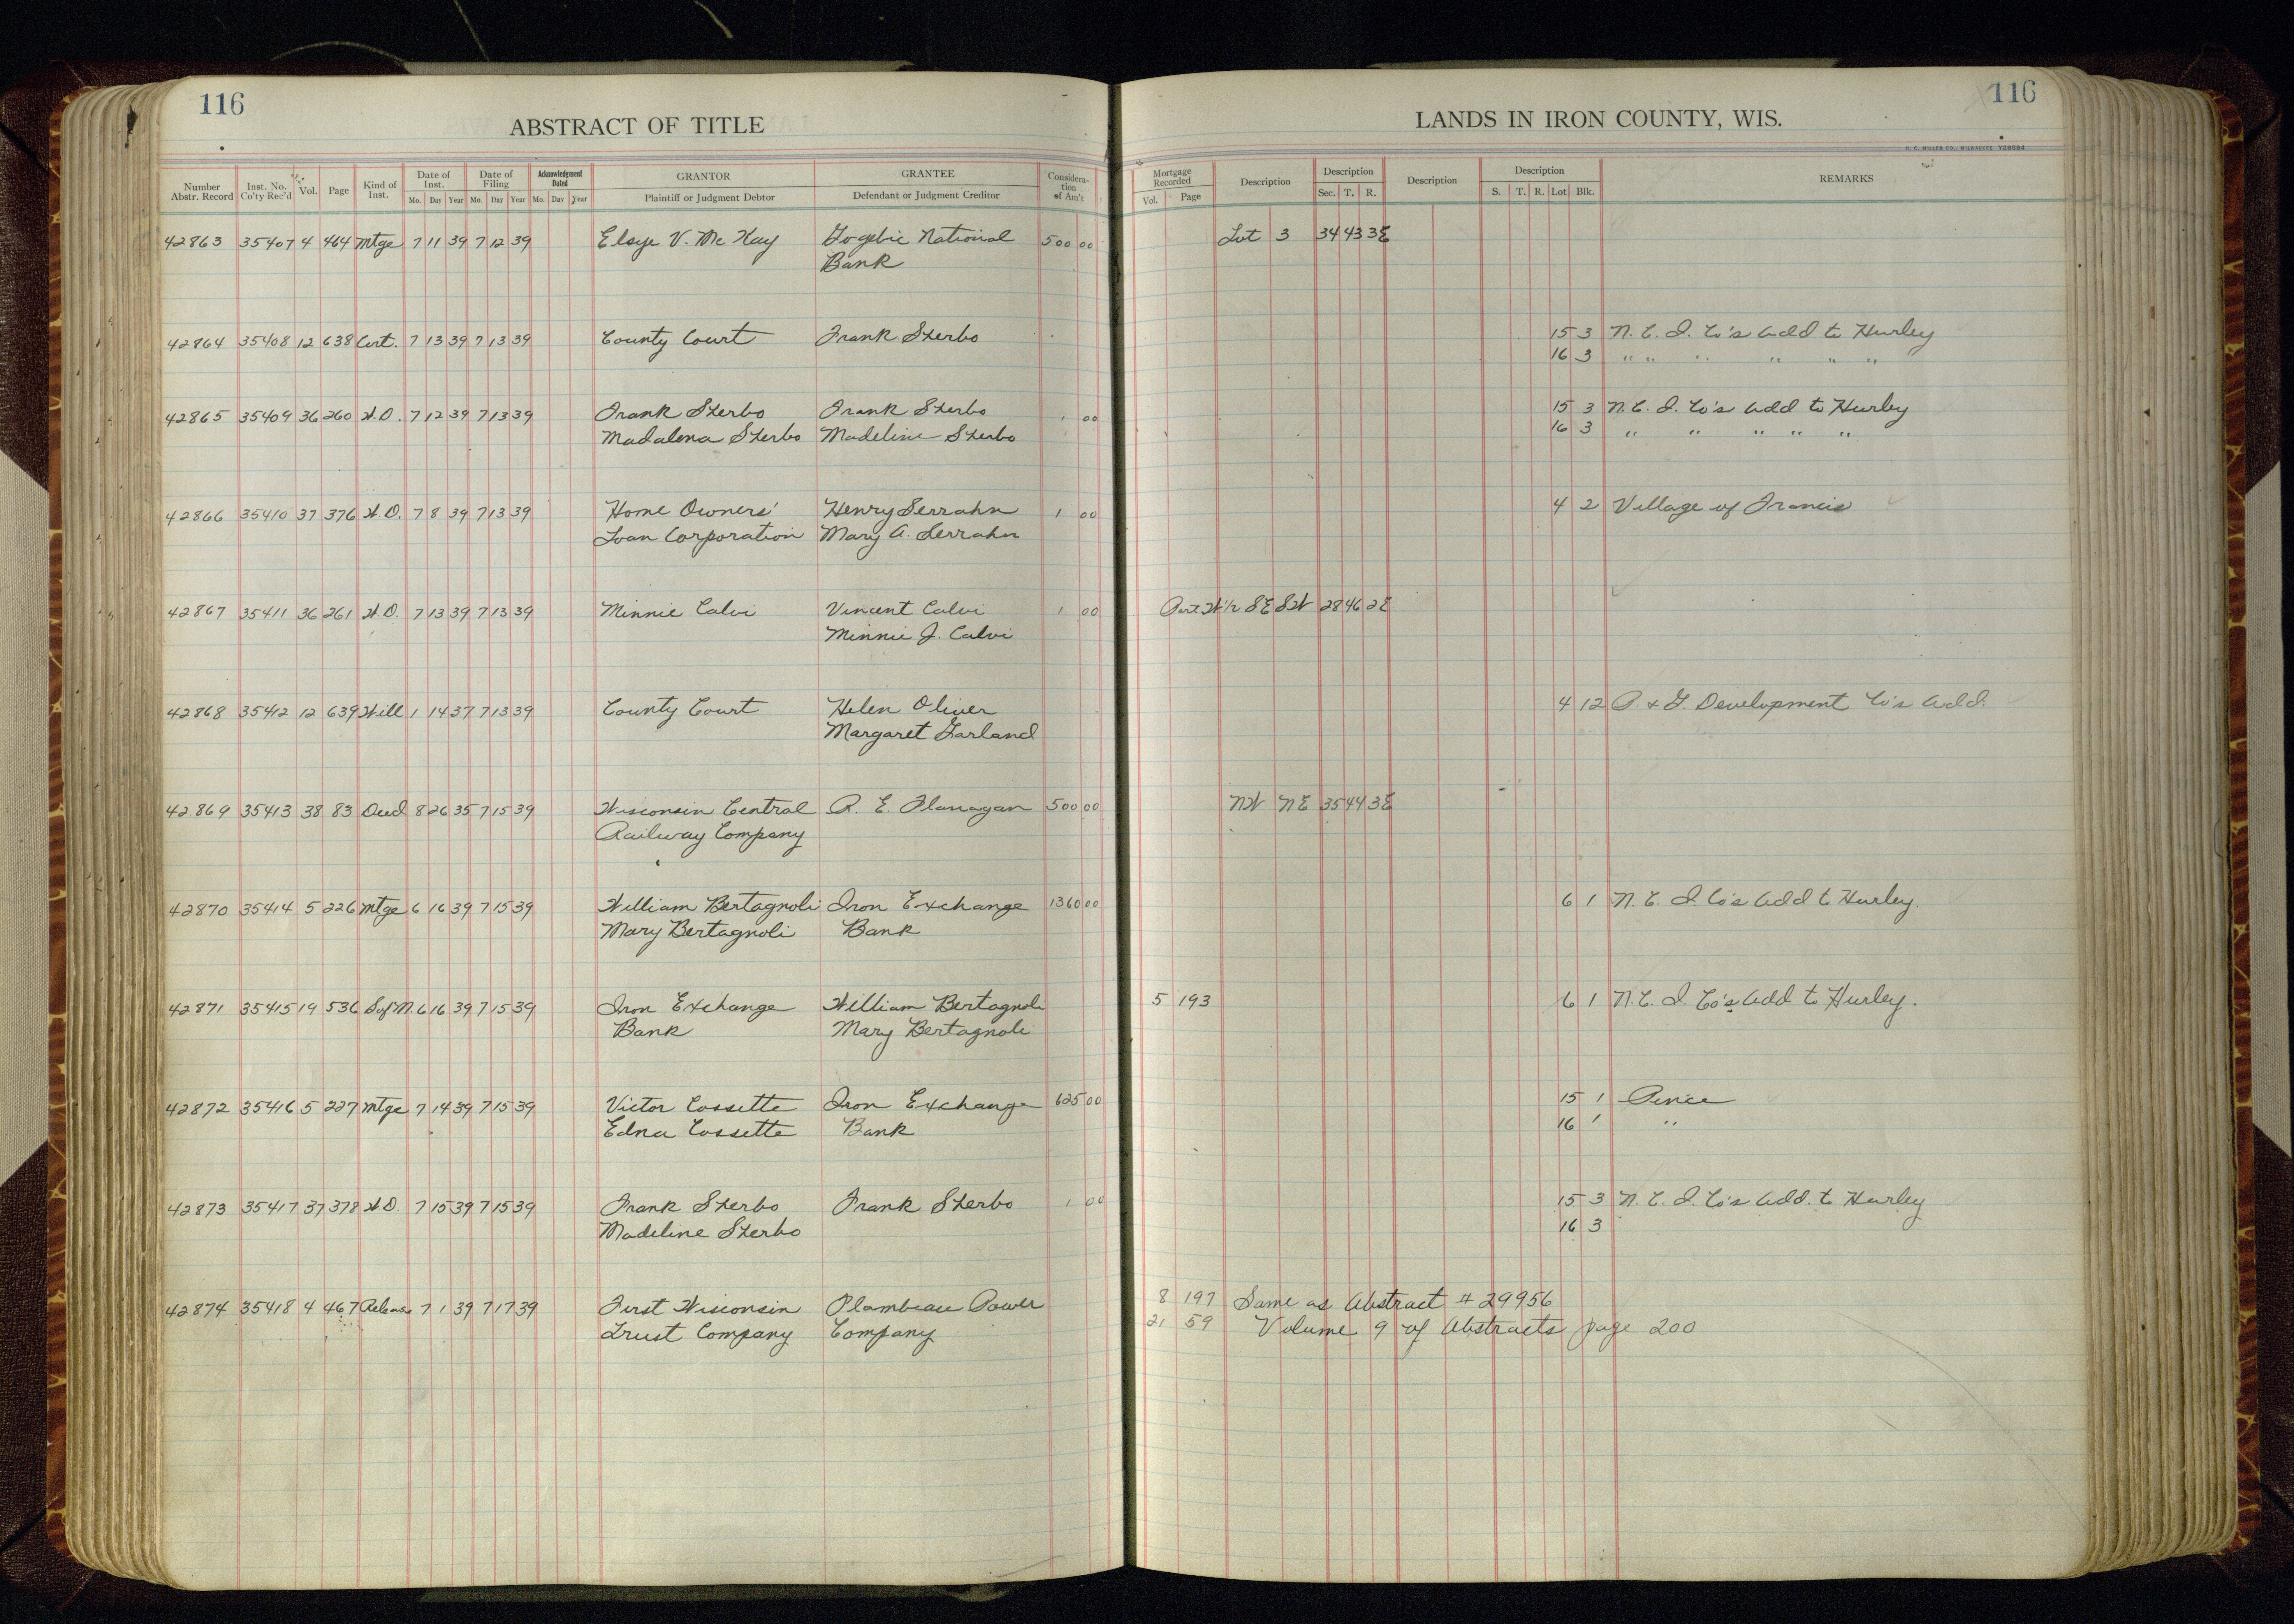 116
ABSTRACT OF TITLE
Number Abstr. Record Inst. No. Co'ty Rec'd Vol. Page Kind of Inst. Date of Inst. Mo. Day Year Date of Filing Mo. Day Year Acknowledgment Dated Mo. Day Year GRANTOR Plaintiff or Judgment Debtor GRANTEE Defendant or Judgment Creditor Considera-tion of Am't
116
LANDS IN IRON COUNTY, WIS.
H. C. MILLER CO., MILWAUKEE
Mortgage Recorded Vol. Page Description Description Sec. T. R. Description Description S. T. R. Lot Blk. REMARKS
42863 35407 4 464 Mtge 7 11 39 7 12 39 Elsye V. McKay Gogebic National 500 00 Lot 3 34 43 3E
Bank
42864 35408 12 638 Cert. 7 13 39 7 13 39 County Court Frank Sterbo 15 3 N. C. I. Co's Add to Hurley
16 3 " " " " " "
42865 35409 36 260 W.D. 7 12 39 7 13 39 Frank Sterbo Frank Sterbo 1 00 15 3 N. C. I. Co's Add to Hurley
Madalena Sterbo Madeline Sterbo 16 3 " " " " "
42866 35410 37 376 W.D. 7 8 39 7 13 39 Home Owners' Henry Serrahn 1 00 4 2 Village of Francis
Loan Corporation Mary A. Serrahn
42867 35411 36 261 W.D. 7 13 39 7 13 39 Minnie Calvi Vincent Calvi 1 00 Part W1/2 SE SW 28 46 2E
Minnie J. Calvi
42868 35412 12 639 Will 1 14 37 7 13 39 County Court Helen Oliver 4 12 P. & G. Development Co's Add.
Margaret Garland
42869 35413 38 83 Deed 8 26 35 7 15 39 Wisconsin Central R. E. Flanagan 500 00 NW NE 35 44 3E
Railway Company
42870 35414 5 226 Mtge 6 16 39 7 15 39 William Bertagnoli Iron Exchange 1360 00 6 1 N. C. I. Co's Add to Hurley.
Mary Bertagnoli Bank
42871 35415 19 536 S of M. 6 16 39 7 15 39 Iron Exchange William Bertagnoli 5 193 6 1 N. C. I. Co's Add to Hurley.
Bank Mary Bertagnoli
42872 35416 5 227 Mtge 7 14 39 7 15 39 Victor Cossette Iron Exchange 625 00 15 1 Pence
Edna Cossette Bank 16 1 "
42873 35417 37 378 W.D. 7 15 39 7 15 39 Frank Sterbo Frank Sterbo 1 00 15 3 N. C. I. Co's Add. to Hurley
Madeline Sterbo 16 3
42874 35418 4 467 Release 7 1 39 7 17 39 First Wisconsin Flambeau Power 8 197 Same as Abstract # 29956
Trust Company Company 21 59 Volume 9 of Abstracts page 200